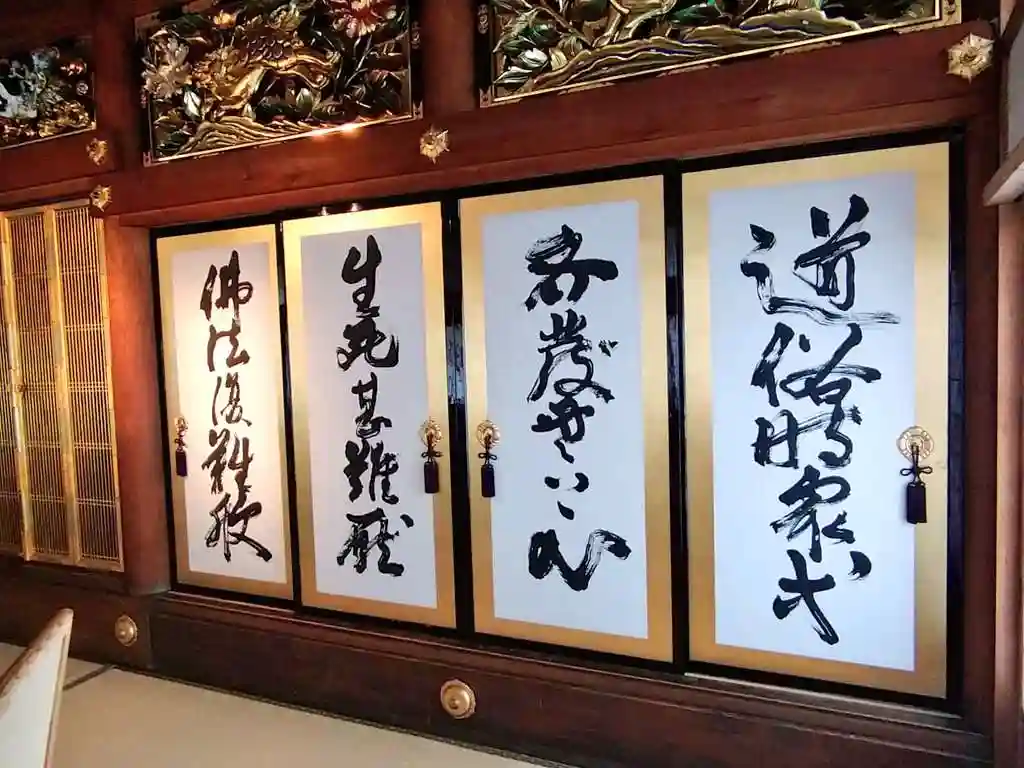 道俗時衆等
各發無上心
生死甚難厭
佛法復難欣